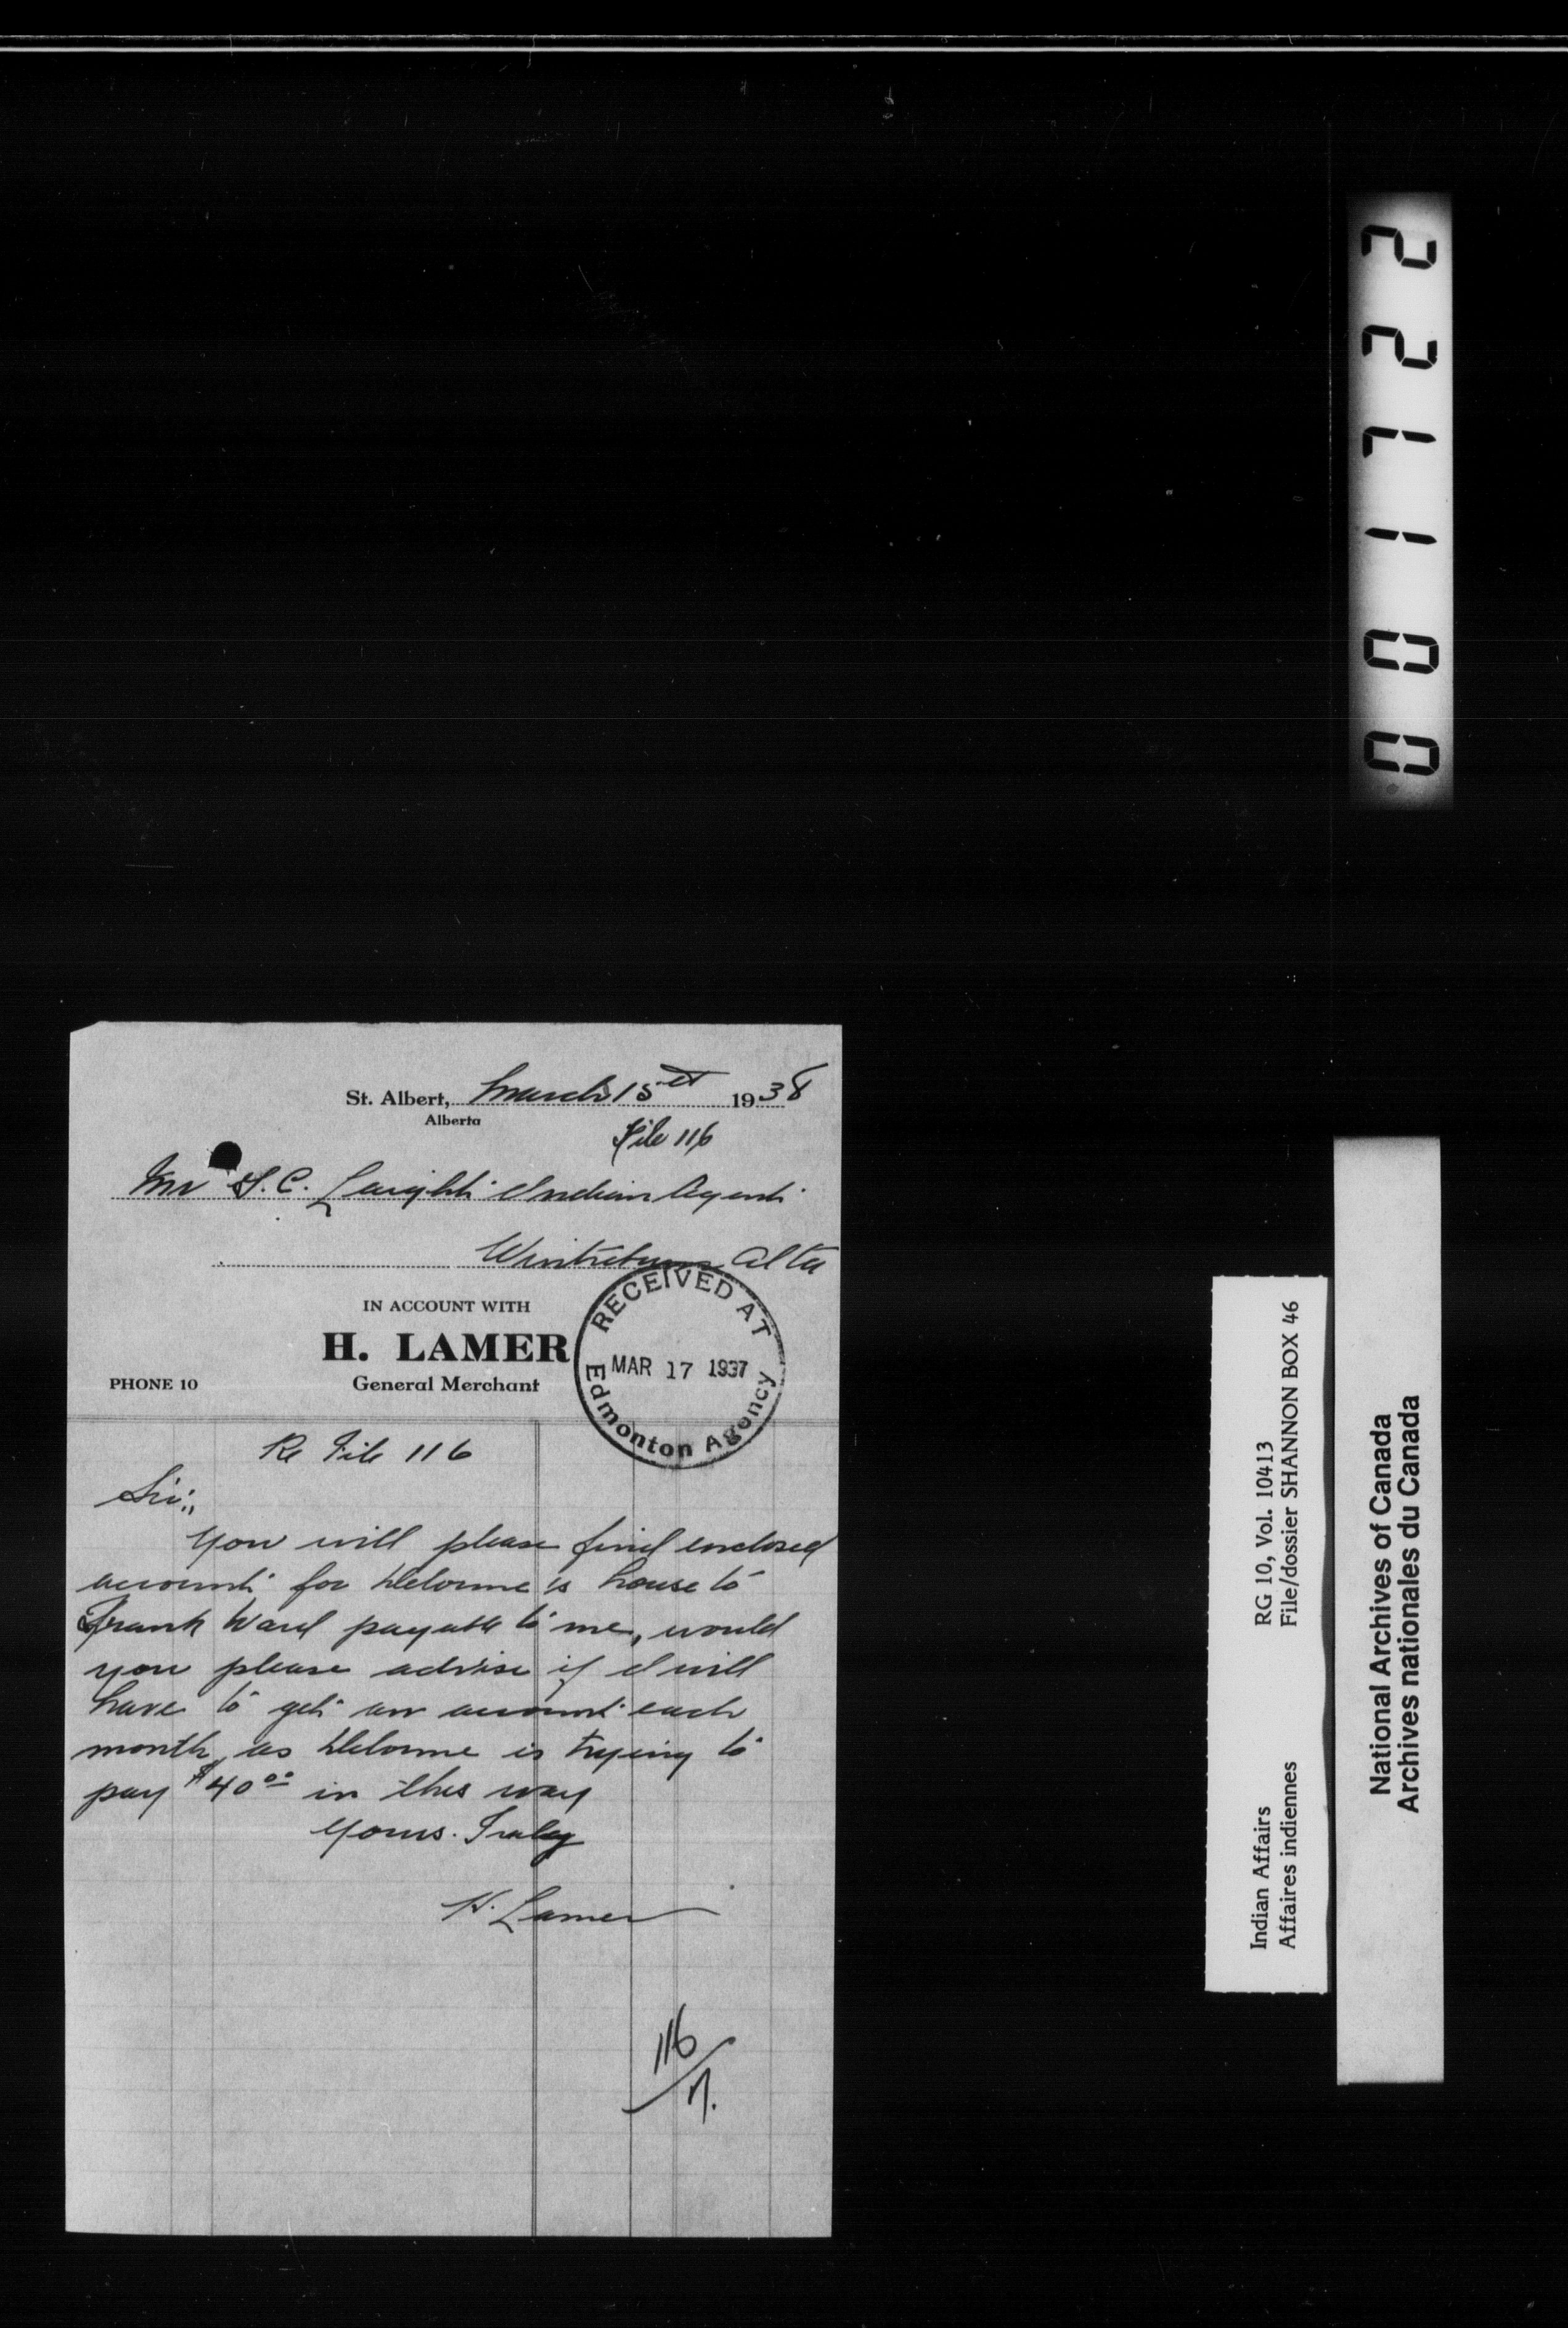 St. Albert, March 15 1938
Alberta
File 116
Mr G. C. Laight Indian Agent
Winterburn Alta
IN ACCOUNT WITH
H. LAMER
PHONE 10
General Merchant
RECEIVED AT
MAR 17 1937
Edmonton Agency
Re File 116
Sir:,,
You will please find enclosed
account for Delorme's house to
Frank Ward payable to me, would
you please advise if I will
have to get an account each
month, as Delorme is trying to
pay $40.00 in this way
Yours. Truly
H. Lamer
116/7.
001722
Indian Affairs RG 10, Vol. 10413
Affaires indiennes File/dossier SHANNON BOX 46
National Archives of Canada
Archives nationales du Canada